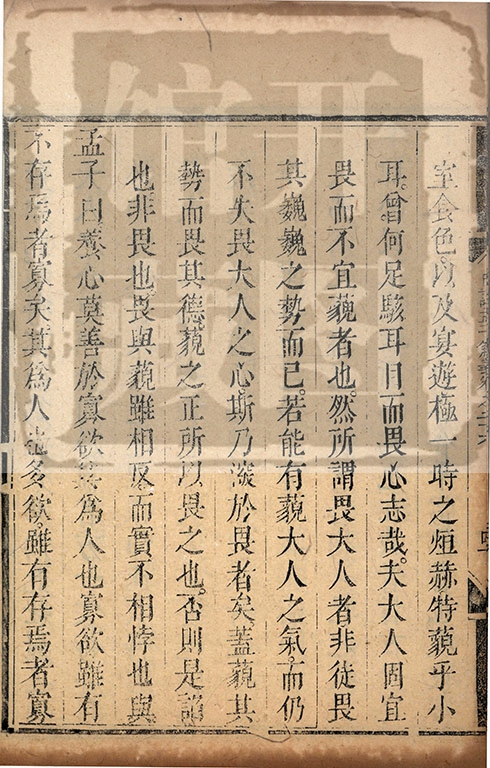 室食色以及宴遊極一時之烜赫特藐乎小
耳曾何足駭耳目而畏心志哉夫大人固宜
畏而不宜藐者也然所謂畏大人者非徒畏
其巍巍之勢而已若能有藐大人之氣而仍
不失畏大人之心斯乃深於畏者矣蓋藐其
勢而畏其德藐之正所以畏之也否則是諂
也非畏也畏與藐雖相反而實不相悖也與
孟子曰養心莫善於寡欲其為人也寡欲雖有
不存焉者寡矣其為人也多欲雖有存焉者寡